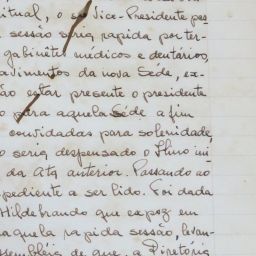 itual, o sr Vice-Presidente pes
sessão seria rapida por ter-
gabinêtes médicos e dentários,
avimentos da nova Séde, ex-
ão estar presente o presidente
o para aquela Séde a fim
convidadas para solenidade,
o seria despensado o Ilmo
da Ata anterior. Passando ao
pediente a ser lido. Foi dada
Hildebrando que expoz em
aquela rapida sessão, levan-
ssembléia de que, a Diretória